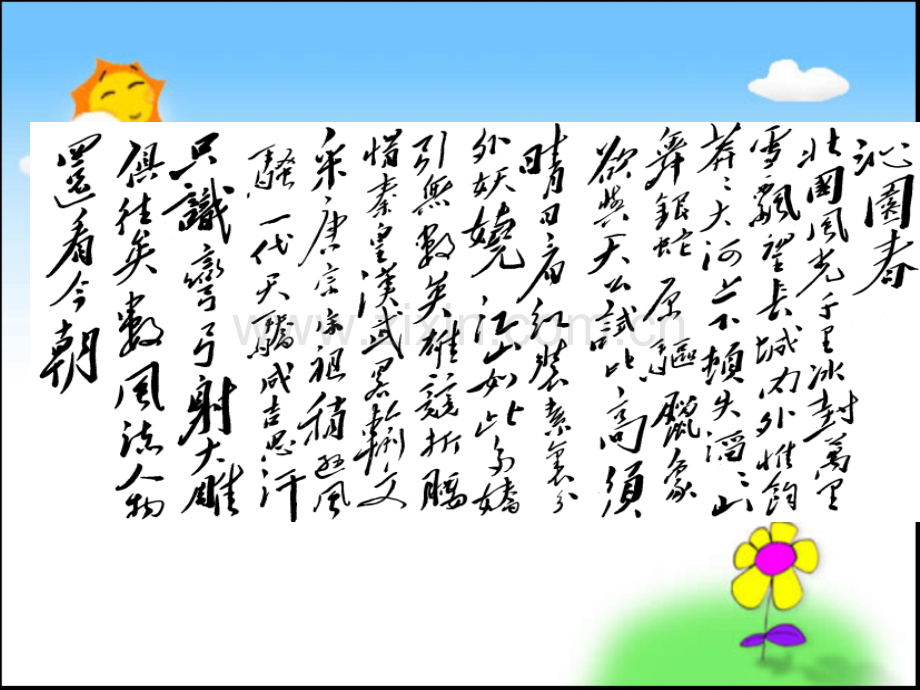 沁園春
北國風光千里冰封萬里
雪飄望長城內外惟餘
莽〻大河上下頓失滔〻山
舞銀蛇原驅臘象
欲與天公試比高須
晴日看紅裝素裹分
外妖嬈江山如此多嬌
引無數英雄競折腰
惜秦皇漢武略輸文
采唐宗宋祖稍遜風
騷一代天驕成吉思汗
只識彎弓射大雕
俱往矣數風流人物
還看今朝
www.zixin.com.cn